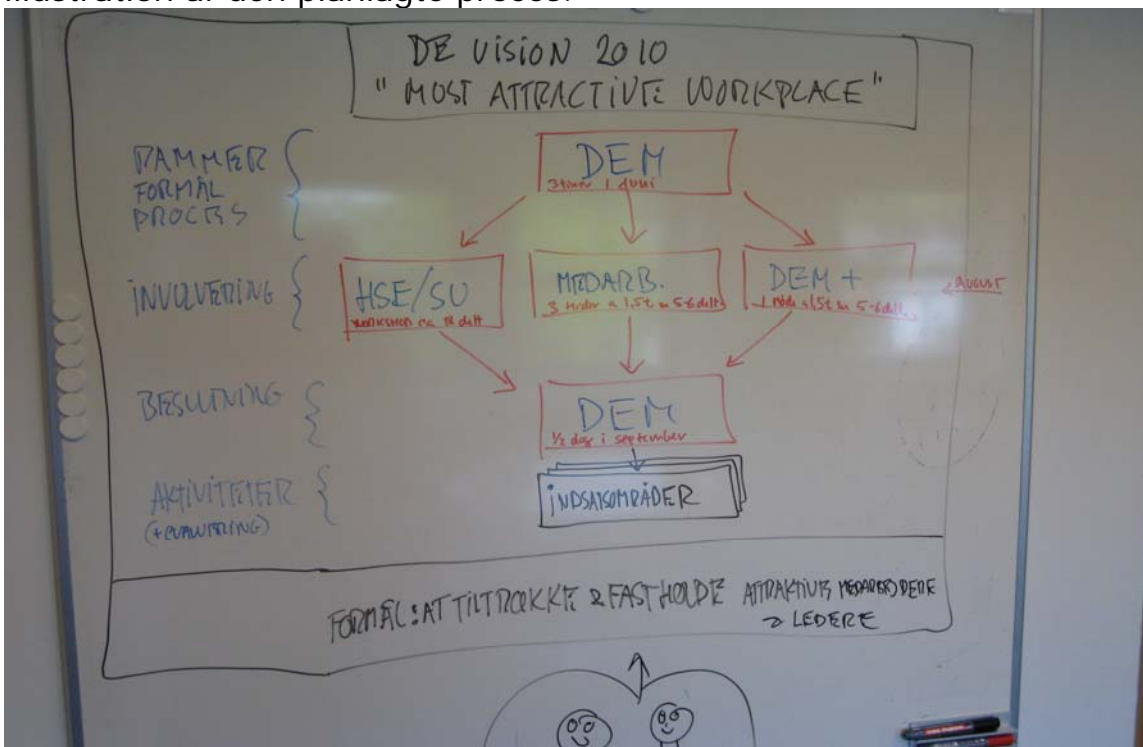 Illustration af den planlagte proces:
DE VISION 2010
"MOST ATTRACTIVE WORKPLACE"
RAMMER
FORMÅL
PROCES
DEM
3 timer 1 juni
INVOLVERING
HSE/SU
workshop ca 12 delt
MEDARB.
3 møder a 1,5 t m 5-6 delt.
DEM +
1 møde a 1,5t m 5-6 delt.
AUGUST
BESLUTNING
DEM
1/2 dag i september
AKTIVITETER
(+EVALUERING)
INDSATSOMRÅDER
FORMÅL: AT TILTRÆKKE & FASTHOLDE ATTRAKTIVE MEDARBEJDERE
LEDERE